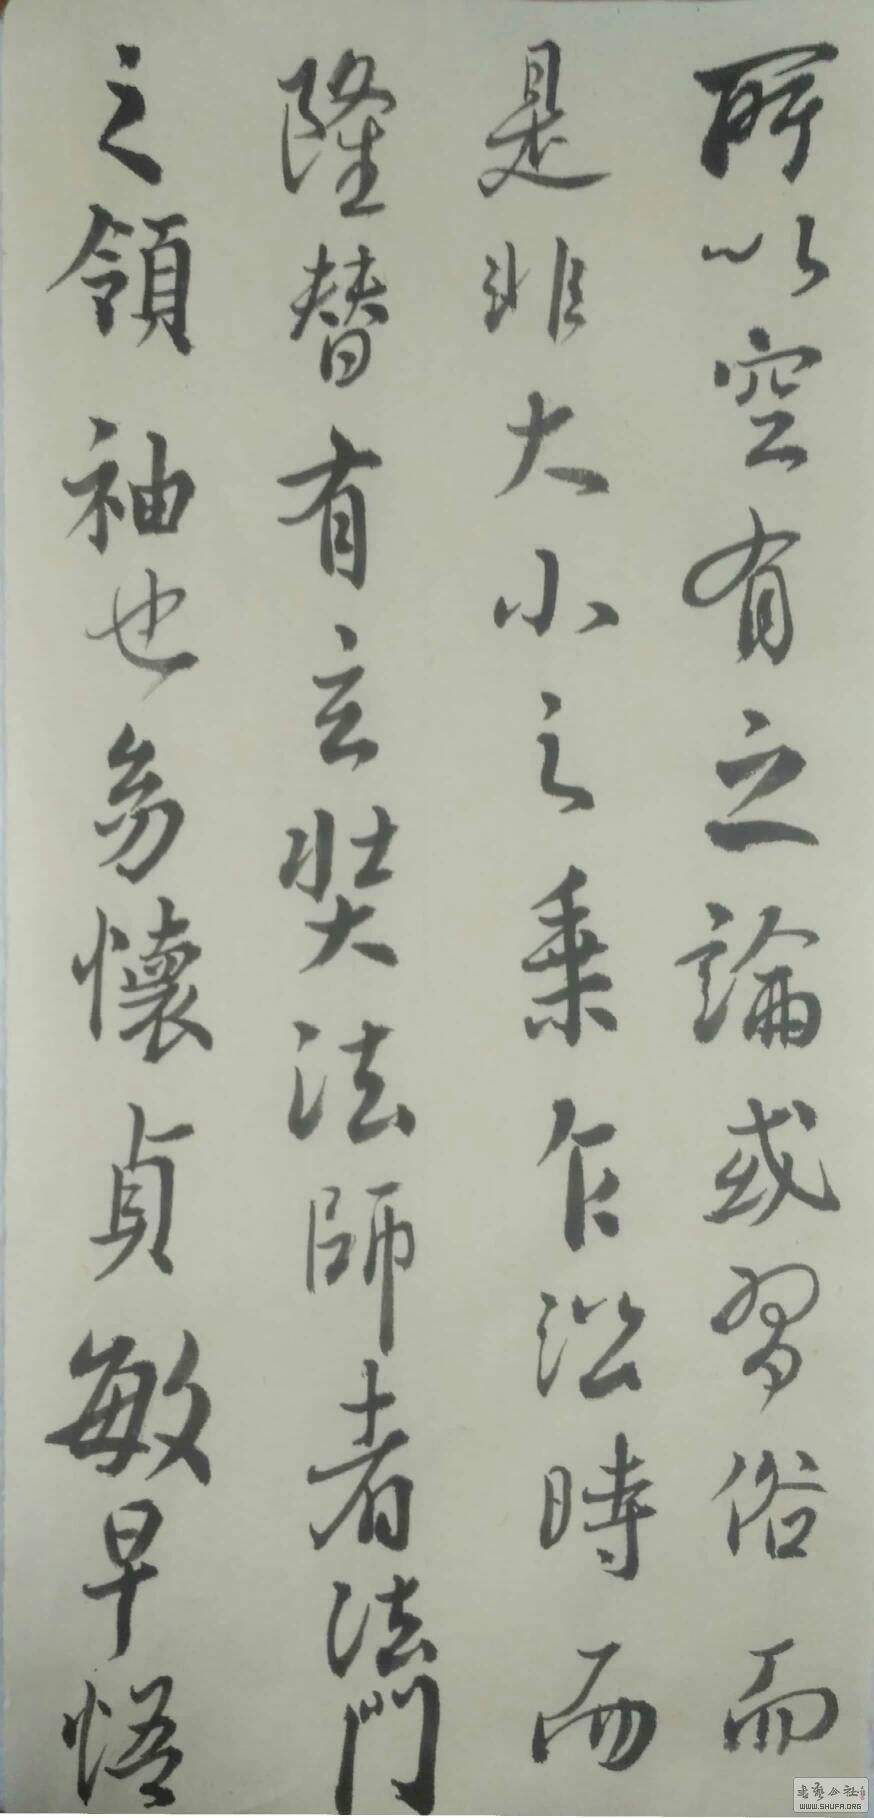 所以空有之論或習俗而
是非大小之乗乍沿時而
隆替有玄奘法師者法門
之領袖也幼懷貞敏早悟
书艺公社
WWW.SHUFA.ORG